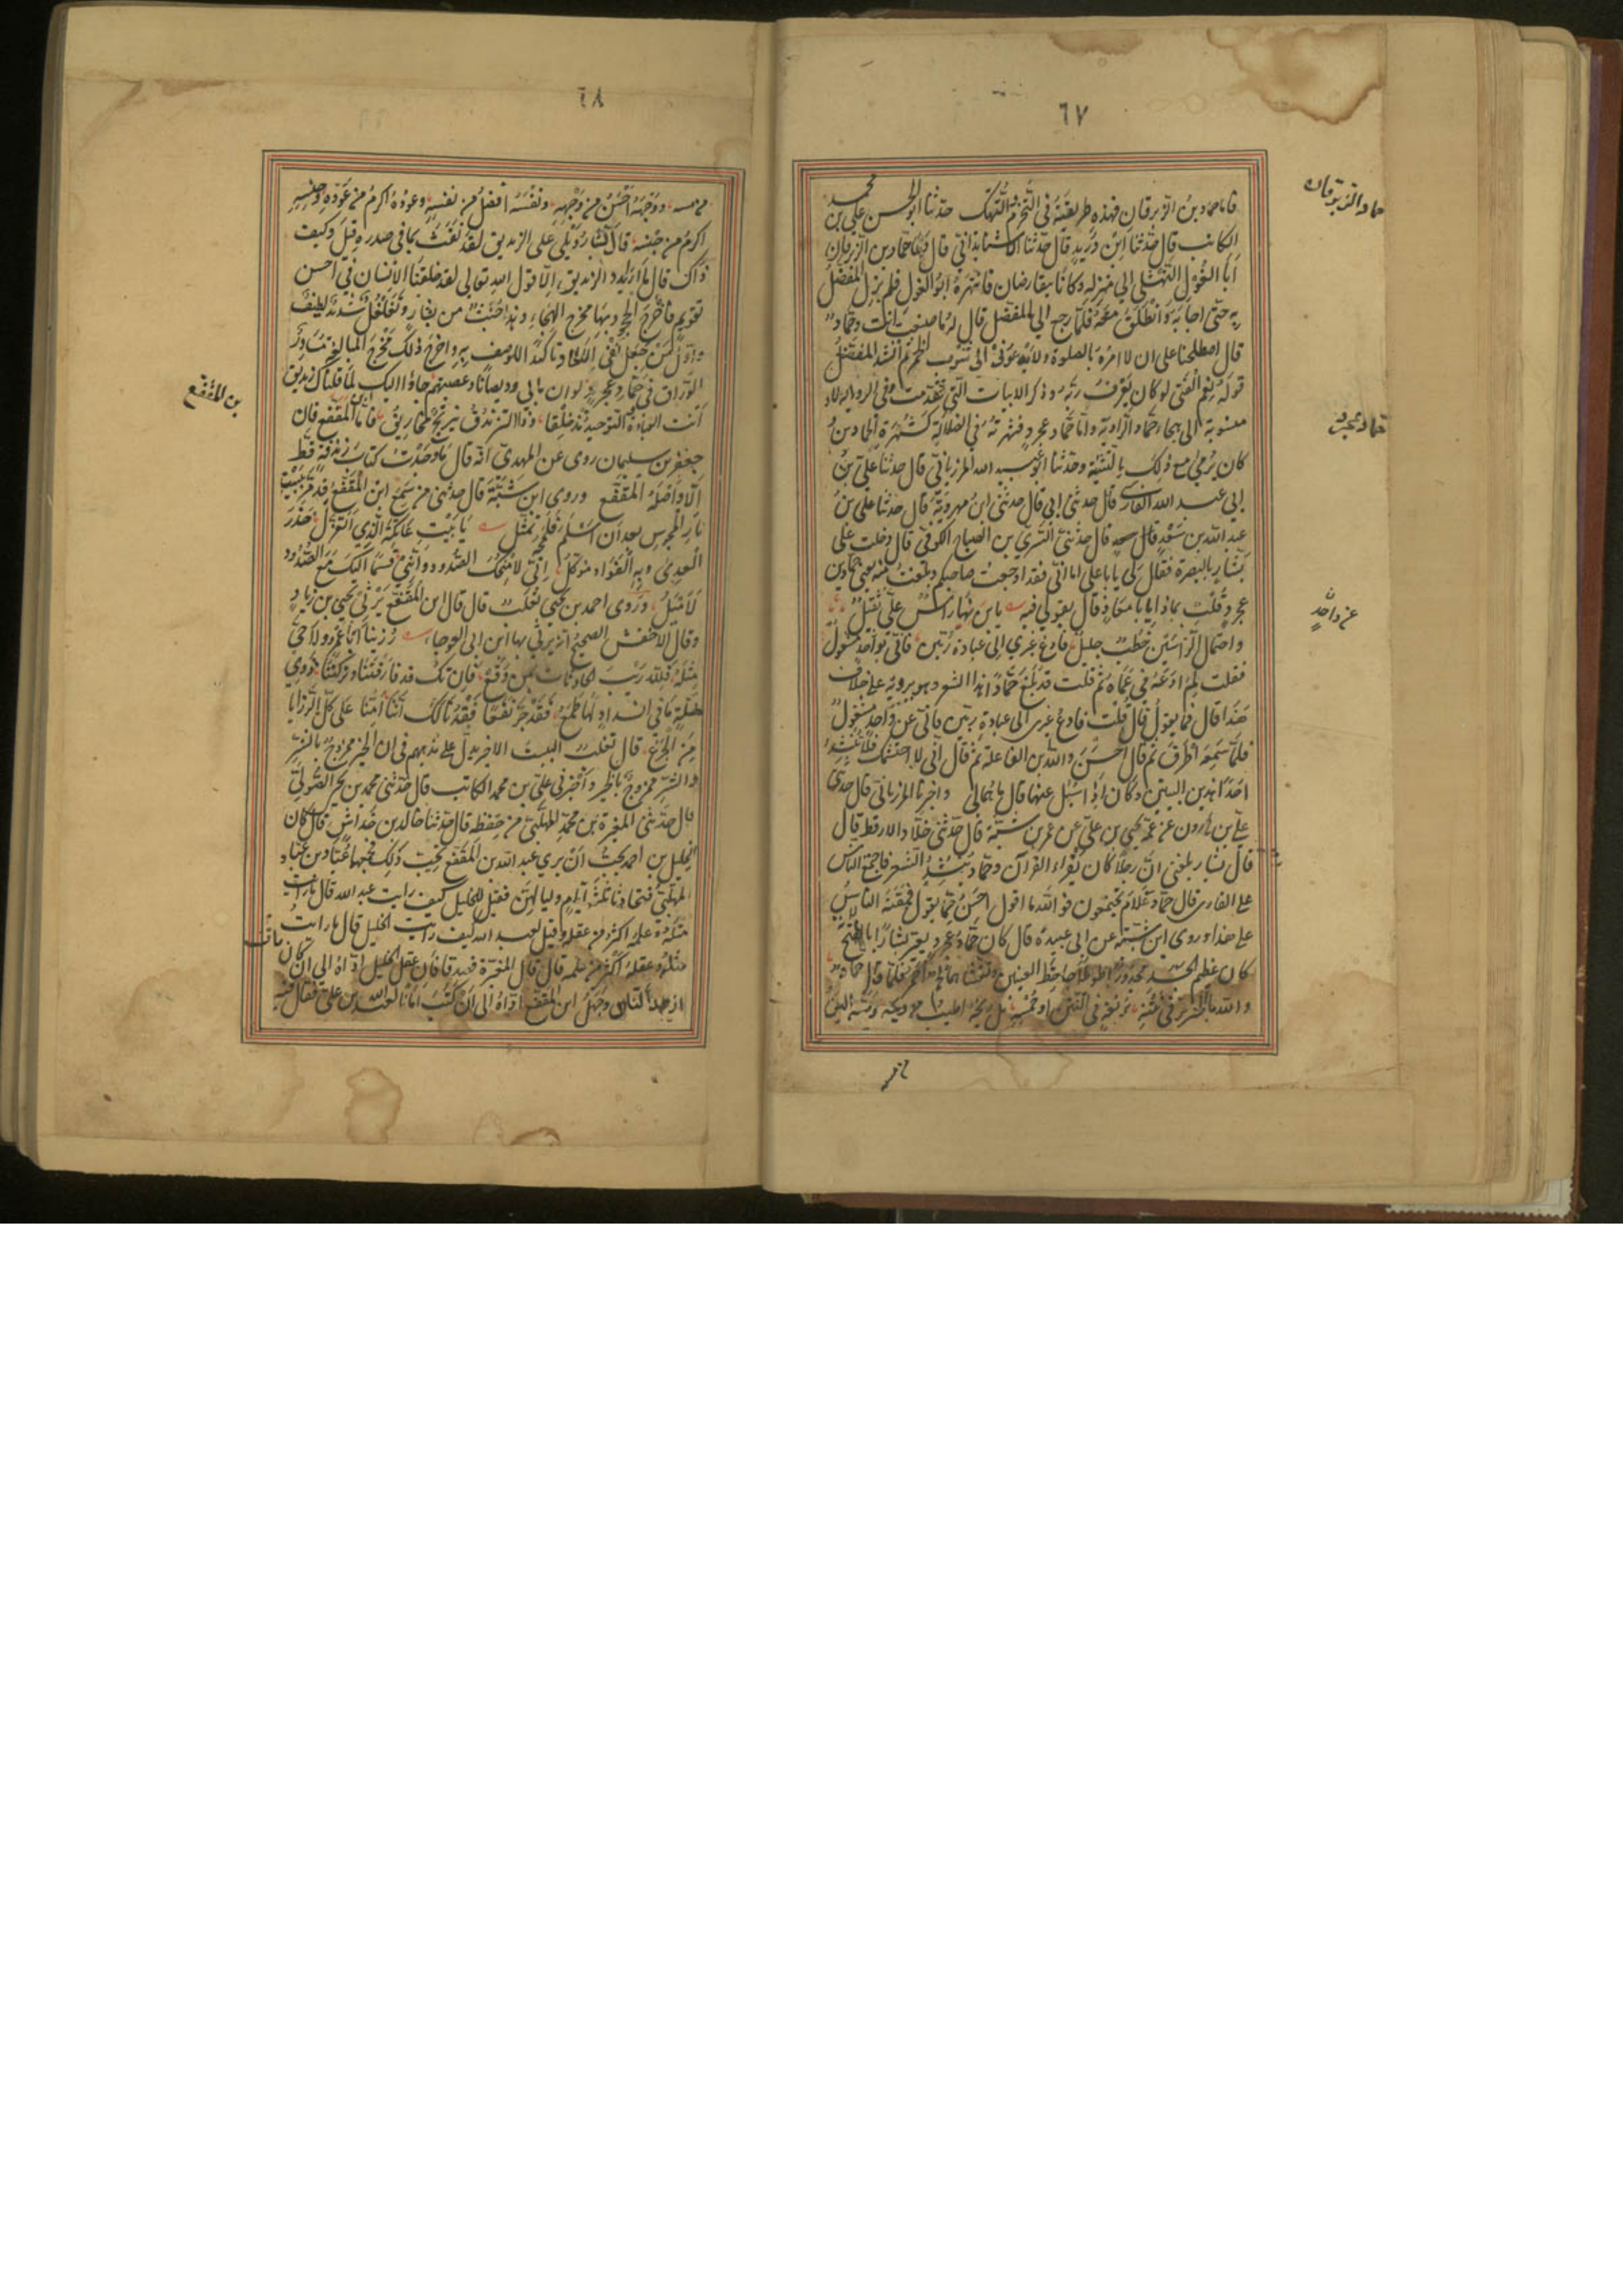 ٦٧
حماد الزبرقان
فاما حماد بن الزبرقان فهذه طريقته في التخرم والتهتك حدثنا ابو الحسن علي بن محمد
الكاتب قال حدثنا ابن دريد قال حدثنا الاشنانداني قال دعا حماد بن الزبرقان
ابا الغول النهشلي الى منزله وكانا يتقارضان فانتهره ابو الغول فلم يزل المفضل
به حتى اجابه وانطلق معه فلما رجع الى المفضل قال له ما صنعت انت وحماد
قال اصطلحنا على ان لا امره بالصلوة ولا يدعوني الى شرب الخمر ثم انشد المفضل
قوله نعم الفتى لو كان يعرف ربه وذكر الابيات التي تقدمت في الرواية الاولى
منسوبة الى هجاء حماد الراوية واما حماد عجرد فشهرته في الضلالة كشهرة الحمادين
حماد عجرد
كان يرمى مع ذلك بالثنية وحدثنا ابو عبيد الله المرزباني قال حدثنا علي بن
ابي عبد الله الفارسي قال حدثني ابي قال حدثني ابن مهروية قال حدثنا علي بن
عبد الله بن سعد قال حدثني السري بن الصباح الكوفي قال دخلت على
بشار بالبصرة فقال لي يا با علي اما اني فقد اوجعت صاحبكم وبلغت منه يعني حماد بن
عجرد فقلت بماذا يا با معاذ قال بقولي فيه يا بن نهيا راس علي ثقيل
عن واحد
واحتمال الراسين خطب جليل فادع غيري الى عبادة ربين فاني بواحد مشغول
فقلت لم ادعه في عماه ثم قلت قد بلغ حمادا هذا الشعر وهو يرويه على خلاف
هذا قال فما يقول قال قلت فادع غيري الى عبادة ربين فاني عن واحد مشغول
فلما سمعه اطرق ثم قال احسن والله بن الفاعلة ثم قال اني لا احتشمك فلا تنشد
احدا هذين البيتين وكان اذا سئل عنها قال ما هما لي واخبرنا المرزباني قال حدثني
علي بن هارون عن عمه يحيى بن علي عن عمر بن شبة قال حدثني خلاد الارقط قال
قال بشار بلغني ان رجلا كان يقراء القرآن وحماد ينشد الشعر فاجتمع الناس
على القارى قال حماد علام تجتمعون فو الله ما اقول احسن مما يقول فمقته الناس
على هذا وروى ابن شبة عن ابي عبيدة قال كان حماد عجرد يعير بشارا بالقبح
كان عظيم الجسد مجدورا طويلا جاحظ العينين قد تغشاهما لحم احمر فلما قال حماد
والله ما الخنزير في نتنه بربعه في النتن او خمسه بل ريحه اطيب من ريحه ومسه الين
من مسه
٦٨
من مسه ووجهه احسن من وجهه ونفسه افضل من نفسه وعوده اكرم من عوده وجنسه
اكرم من جنسه قال بشار ويلي على الزنديق لقد نفث بما في صدره قيل وكيف
ذاك قال ما اراد الزنديق الا قول الله تعالى لقد خلقنا الانسان في احسن
تقويم فاخرج الجحود بها مخرج الهجاء وهذا خبث من بشار وتغلغل شديد لطيف
الوراق في حماد عجرد لو ان ماني وديصانا وعصبتهم جاؤا اليك لما قلناك زنديق
انت العبادة والتوحيد مذ خلقا وذا التزندق نيرنج مخاريق فاما ابن المقفع فان
بن المقفع
جعفر بن سليمان روى عن المهدي انه قال ما وجدت كتاب زندقة قط
الا واصله المقفع وروى ابن شبة قال حدثني من سمع ابن المقفع قد مر ببيت
نار المجوس بعد ان اسلم فلمحه وتمثل يا بيت عاتكة الذي اتعزل حذر
العدى وبه الفؤاد موكل اني لامنحك الصدود وانني قسما اليك مع الصدود
لاميل وروى احمد بن يحيى ثعلب قال قال ابن المقفع يرثي يحيى بن زياد
وقال الاخفش الصحيح انه يرثي بها ابن ابي العوجاء رزينا ابا عمرو ولا حي
مثله فلله ريب الحادثات بمن وقع فان تك قد فارقتنا وتركتنا ذوي
خلة ما في انسداد لها طمع فقد جر نفعا فقدنا لك اننا امنا على كل الرزايا
من الجزع قال ثعلب البيت الاخير يدل على مذهبهم في ان الخير ممزوج بالشر
والشر ممزوج بالخير واخبرني علي بن محمد الكاتب قال حدثني محمد بن يحيى الصولي
قال حدثني المغيرة بن محمد المهلبي من حفظه قال حدثنا خالد بن خداش قال كان
الخليل بن احمد يحب ان يرى عبد الله بن المقفع يحب ذلك فجمعهما عباد بن عباد
المهلبي فتحادثا ثلثة ايام ولياليهن فقيل للخليل كيف رايت عبد الله قال ما رايت
مثله وعلمه اكثر من عقله وقيل لعبد الله كيف رايت الخليل قال ما رايت
مثله وعقله اكثر من علمه قال قال المغيرة فصدقا فان عقل الخليل اداه الى ان كان مات
ازهد الناس وجهل ابن المقفع اداه الى ان كتب امانا لعبد الله بن علي فقال فيه